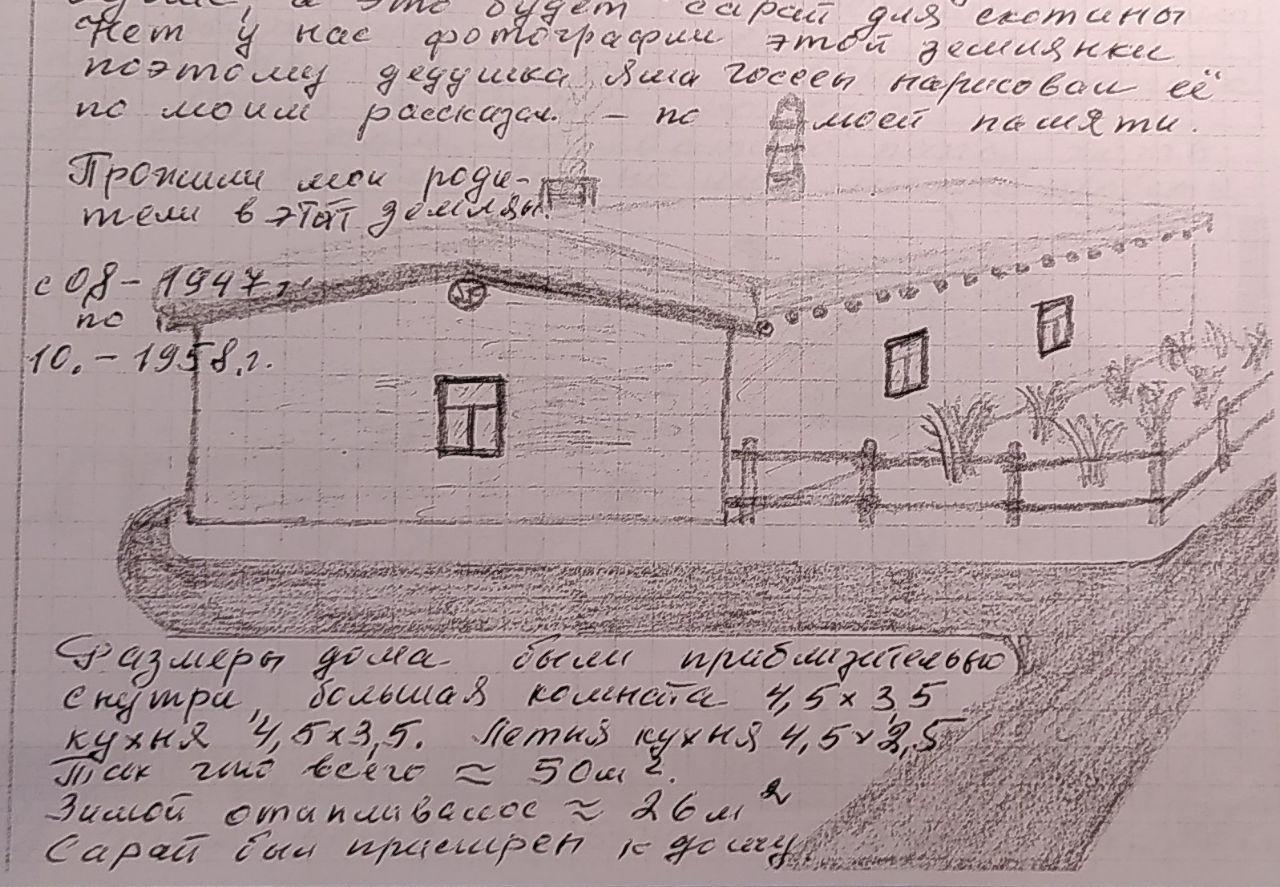 а это будет сарай для скотины
Нет у нас фотографии этой землянки
поэтому дедушка Яша Госсен нарисовал её
по моим рассказам – по моей памяти.
Прожили мои роди-
тели в этой землян.
с 08 – 1947 г.
по
10. – 1958. г.
Размеры дома были приблизительно
снутри, большая комната 4,5 х 3,5
кухня 4,5 х 3,5. Летняя кухня 4,5 х 2,5
Так что всего ≈ 50 м².
Зимой отапливалос ≈ 26 м²
Сарай был пристрен к дому.